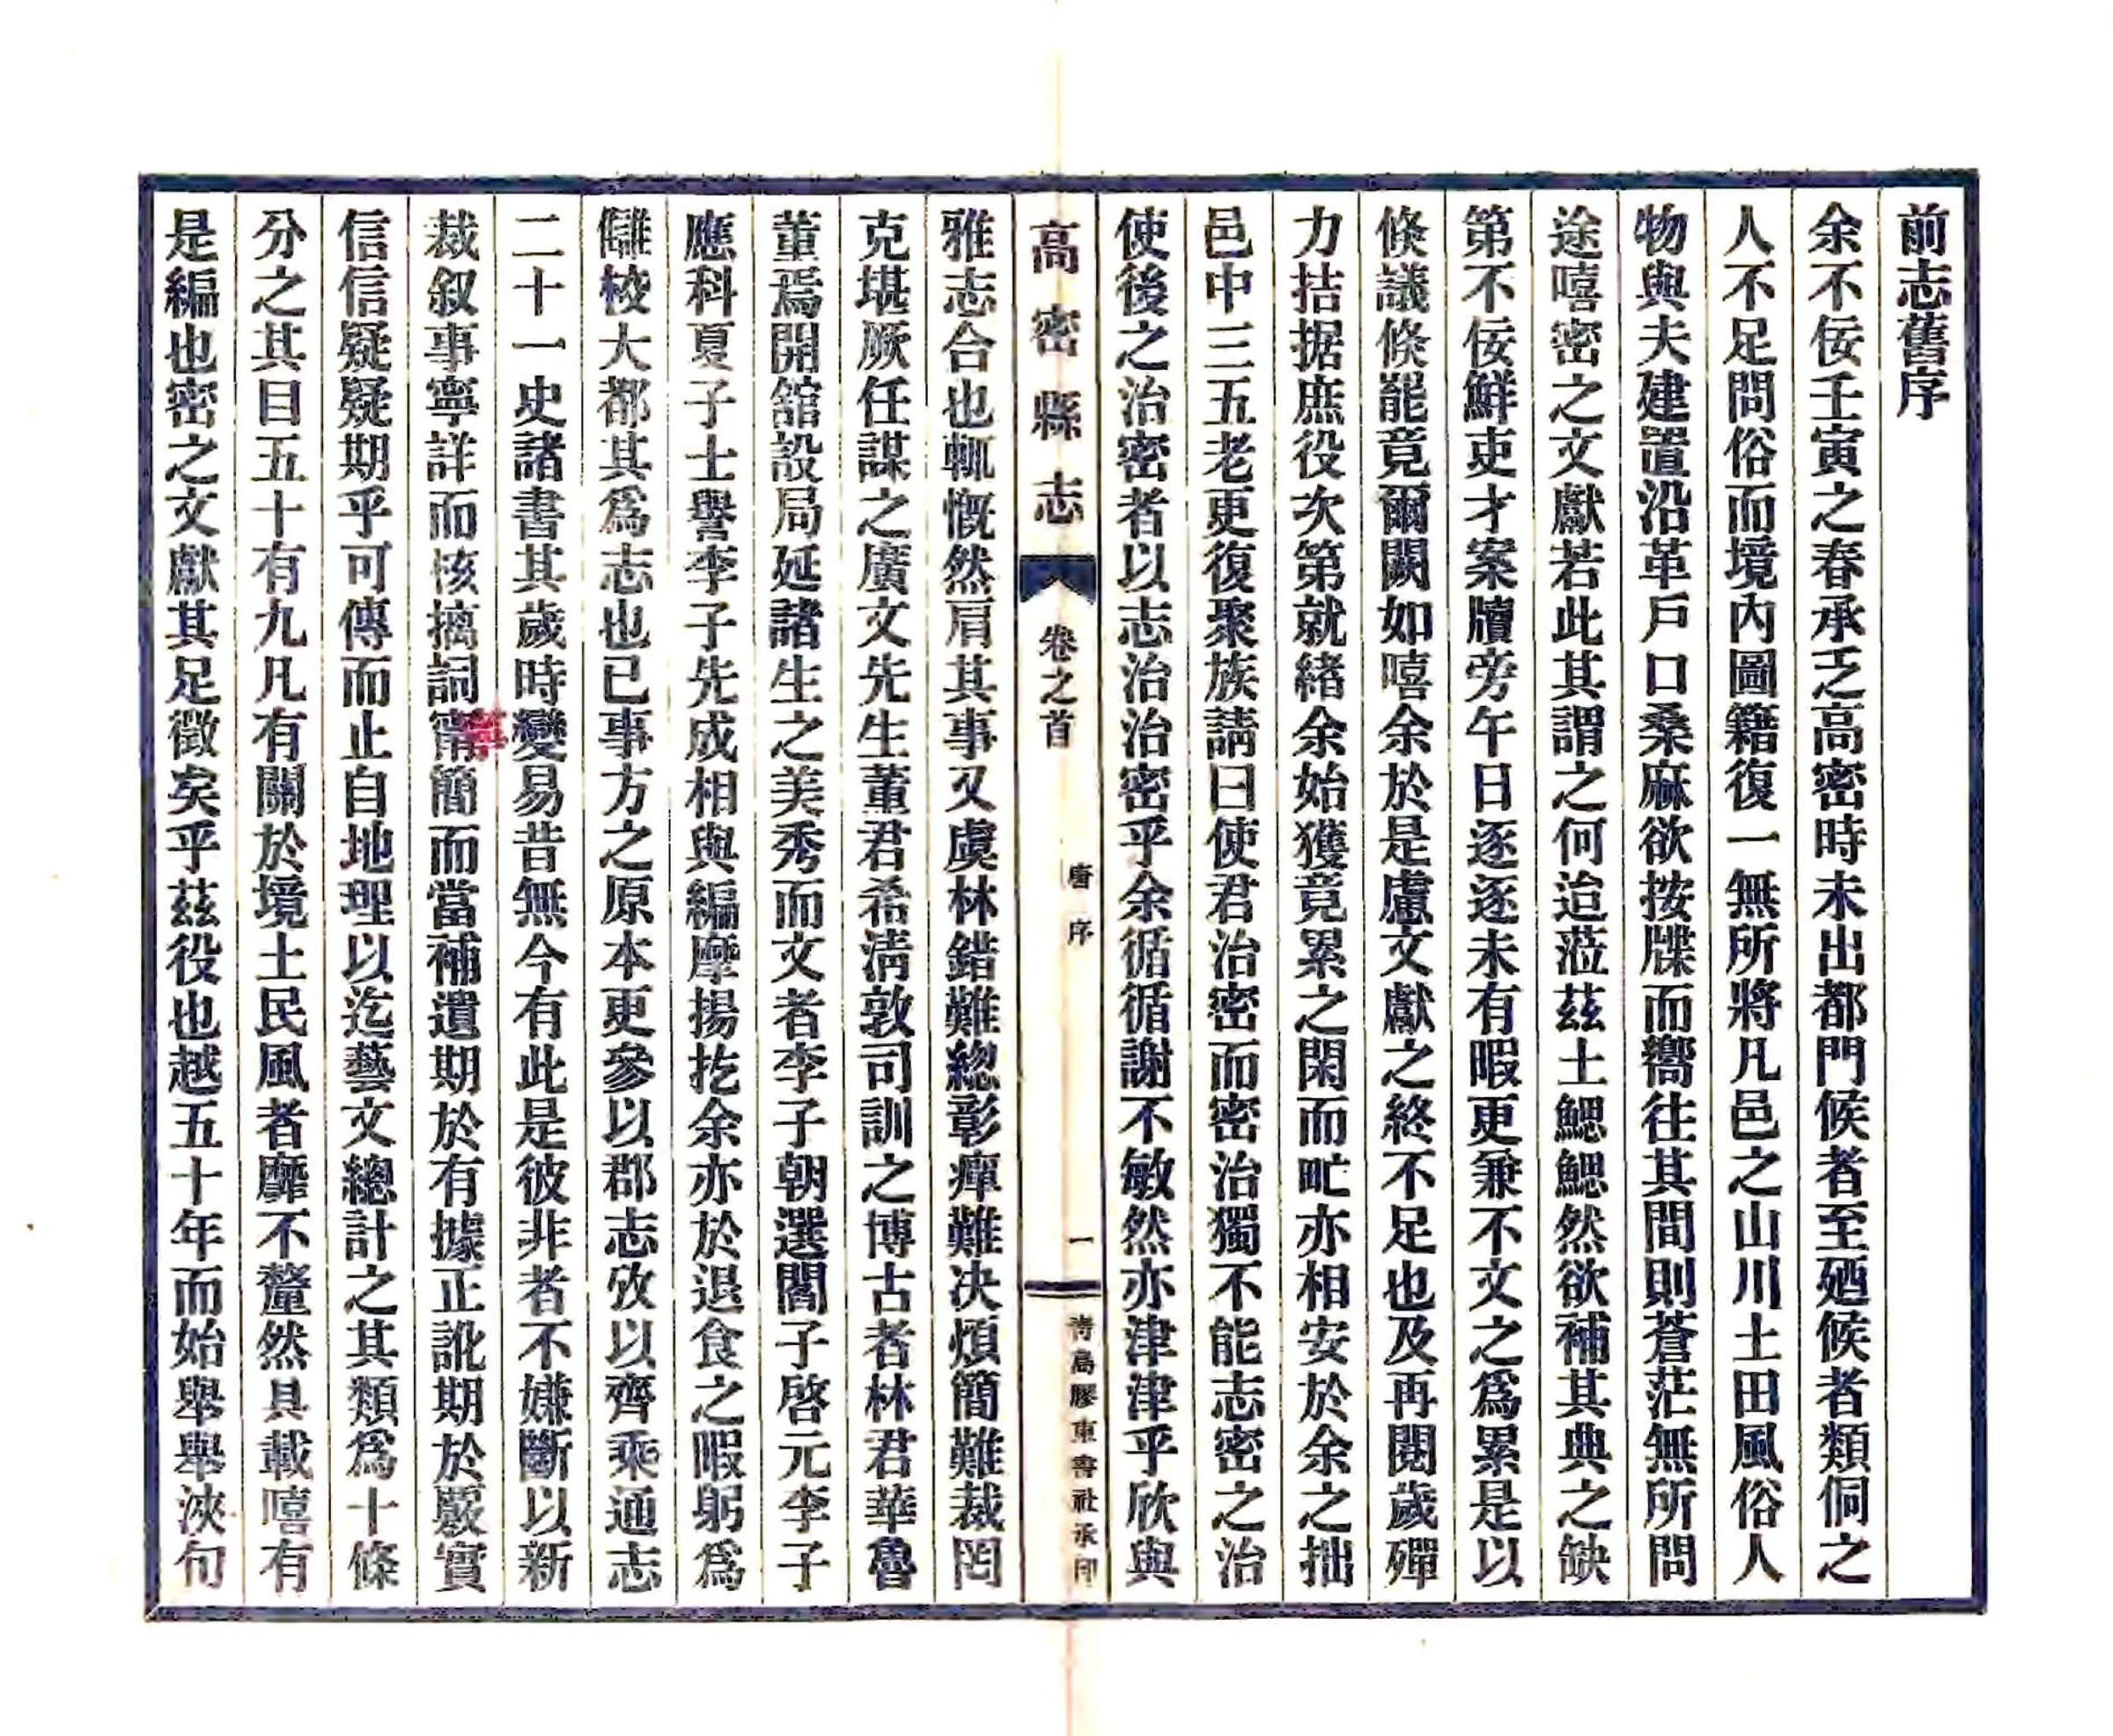 前志舊序
余不佞壬寅之春承乏高密時未出都門候者至廼候者類侗之
人不足問俗而境內圖籍復一無所將凡邑之山川土田風俗人
物與夫建置沿革戶口桑麻欲按牒而嚮往其間則蒼茫無所問
途嘻密之文獻若此其謂之何迨蒞茲土鰓鰓然欲補其典之缺
第不佞鮮吏才案牘旁午日逐逐未有暇更兼不文之爲累是以
倐議倐罷竟爾闕如嘻余於是慮文獻之終不足也及再閱歲殫
力拮据庶役次第就緒余始獲竟累之閑而甿亦相安於余之拙
邑中三五老更復聚族請曰使君治密而密治獨不能志密之治
使後之治密者以志治治密乎余循循謝不敏然亦津津乎欣與
高密縣志
卷之首
唐序
一
青島膠東書社承印
雅志合也輒慨然肩其事又虞林錯難總彰癉難决煩簡難裁罔
克堪厥任謀之廣文先生董君希淸敦司訓之博古者林君華魯
董焉開舘設局延諸生之美秀而文者李子朝選閻子啓元李子
應科夏子士譽李子先成相與編摩揚扢余亦於退食之暇躬爲
讎校大都其爲志也已事方之原本更參以郡志攷以齊乘通志
二十一史諸書其歲時變易昔無今有此是彼非者不嫌斷以新
裁叙事寧詳而核摛詞甯簡而當補遺期於有據正訛期於覈實
信信疑疑期乎可傳而止自地理以迄藝文總計之其類爲十條
分之其目五十有九凡有關於境土民風者靡不釐然具載嘻有
是編也密之文獻其足徵矣乎茲役也越五十年而始舉舉浹旬